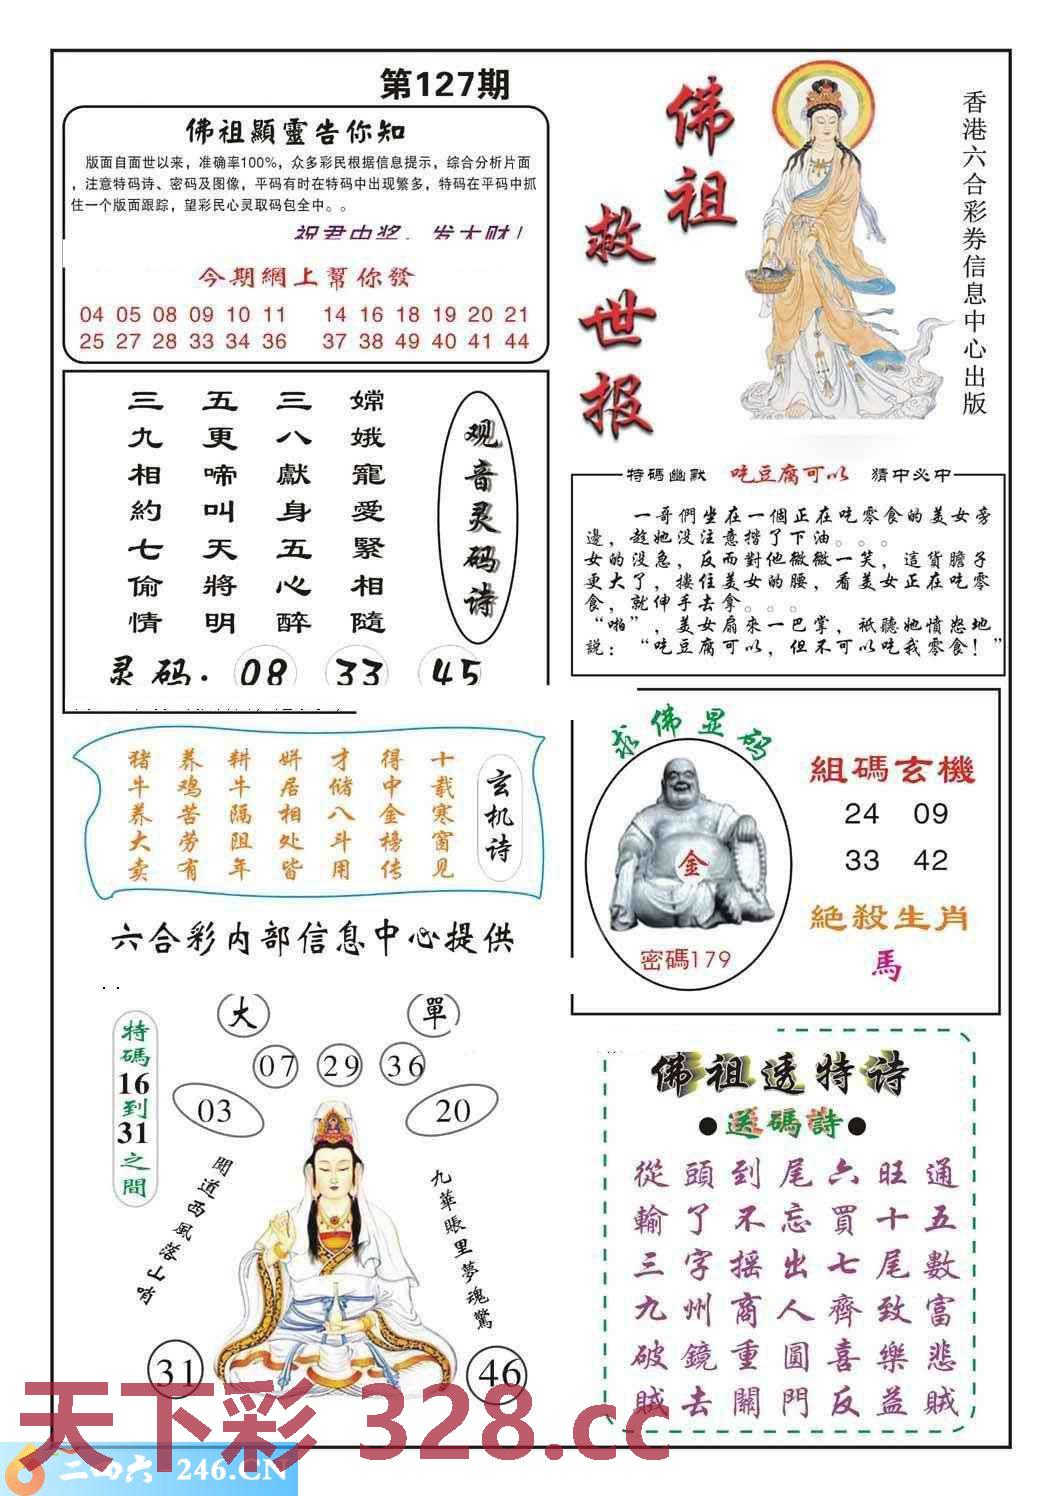 第127期
佛祖顯靈告你知
版面自面世以来，准确率100%，众多彩民根据信息提示，综合分析片面
，注意特码诗、密码及图像，平码有时在特码中出现繁多，特码在平码中抓
住一个版面跟踪，望彩民心灵取码包全中。。
祝君中奖，发大财！
今期網上幫你發
04 05 08 09 10 11 14 16 18 19 20 21
25 27 28 33 34 36 37 38 49 40 41 44
佛祖
救世报
香港六合彩券信息中心出版
观音灵码诗
嫦娥寵愛緊相隨
三八獻身五心醉
五更啼叫天將明
三九相約七偷情
灵码：08 33 45
特碼幽默 吃豆腐可以 猜中必中
一哥們坐在一個正在吃零食的美女旁
邊，趁她没注意揩了下油。。。
女的没急，反而對他微微一笑，這貨膽子
更大了，摟住美女的腰，看美女正在吃零
食，就伸手去拿。。。
“啪”，美女扇來一巴掌，祇聽她憤怒地
説：“吃豆腐可以，但不可以吃我零食！”
玄机诗
十载寒窗见
得中金榜传
才储八斗用
姘居相处皆
耕牛隔阻年
养鸡苦劳有
猪牛养大卖
六合彩内部信息中心提供
求佛显码
金
密碼179
組碼玄機
24 09
33 42
絕殺生肖
馬
大 單
07 29 36
03 20
特碼16到31之間
聞道西風落山哨
九華賬里夢魂驚
31 46
佛祖透特诗
●送碼詩●
從頭到尾六旺通
輸了不忘買十五
三字摇出七尾數
九州商人齊致富
破鏡重圓喜樂悲
賊去關門反益賊
天下彩 328.cc
二四六 246.CN